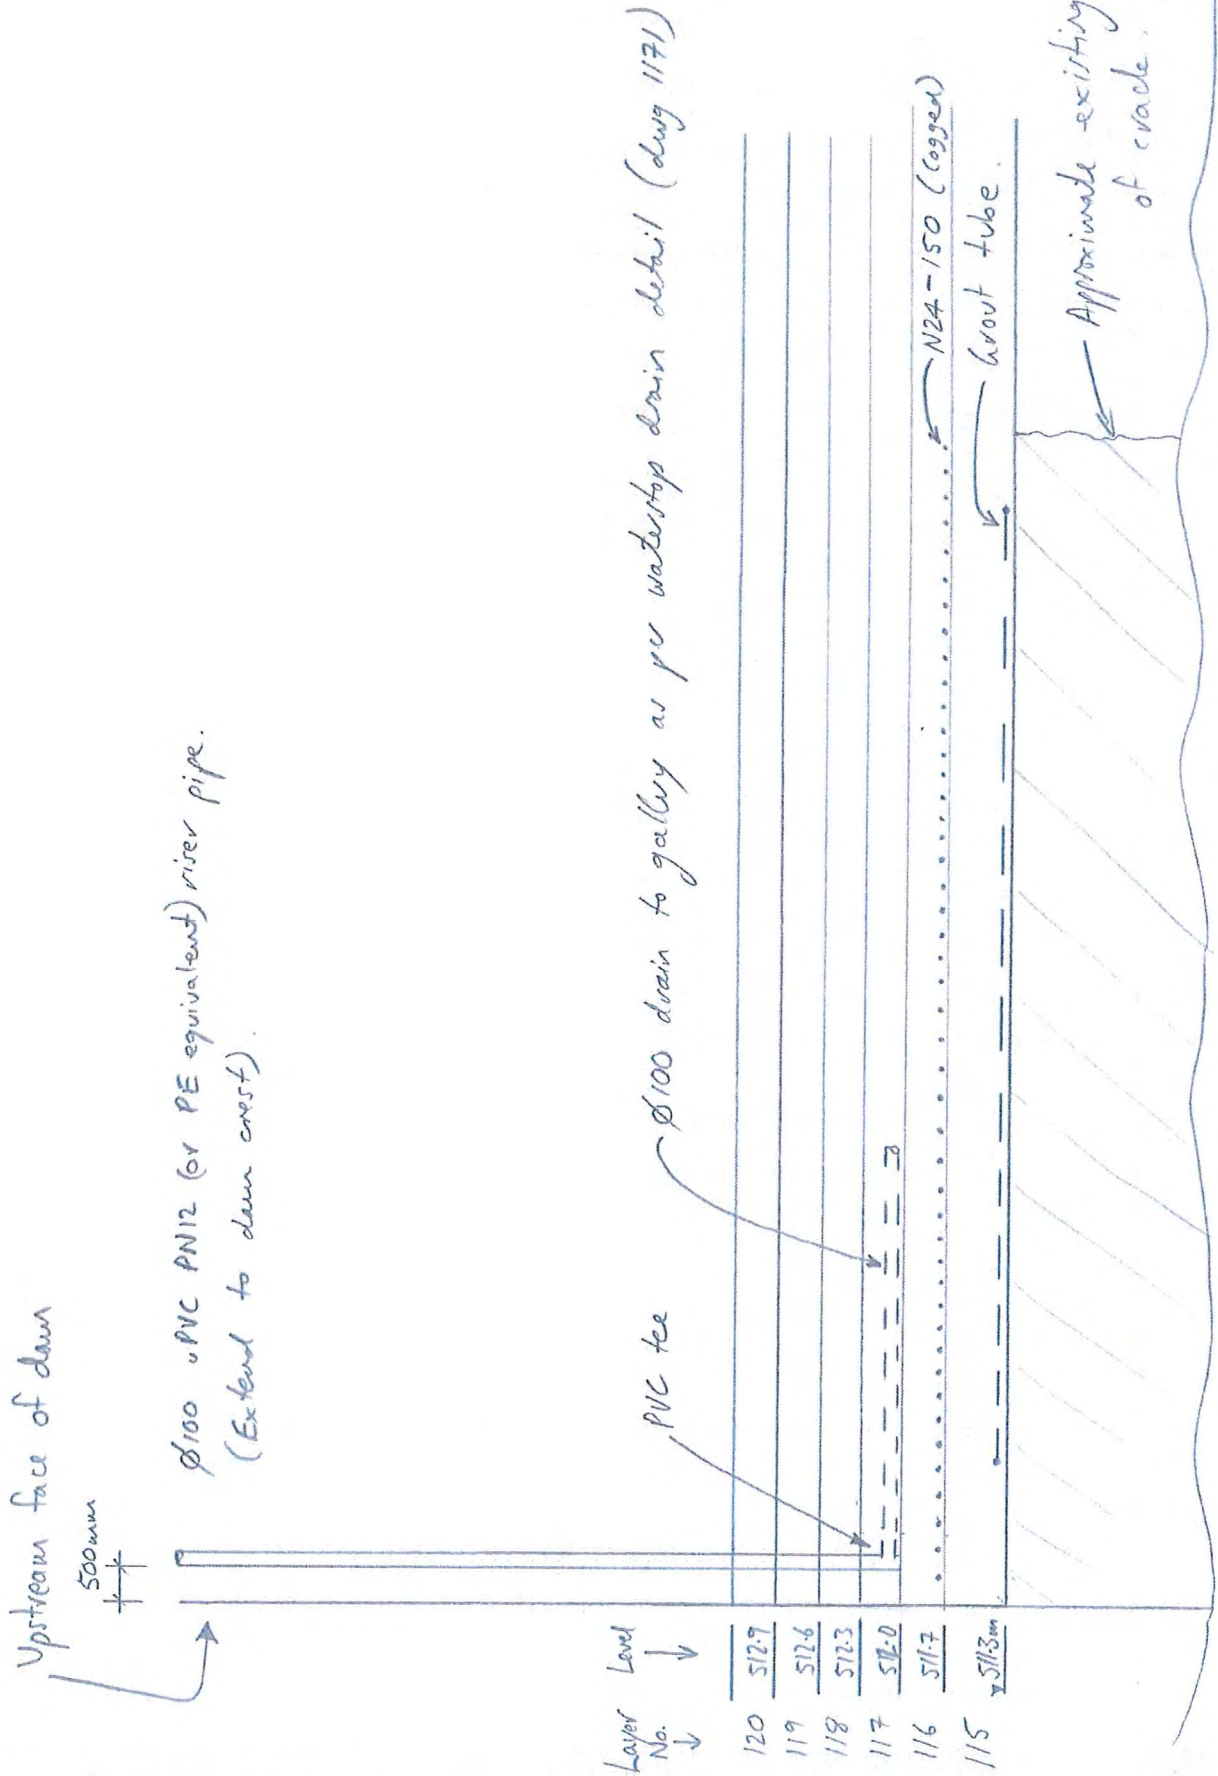 Upstream face of dam
500mm
Ø100 uPVC PN12 (or PE equivalent) riser pipe.
(Extend to dam crest).
PVC tee
Ø100 drain to gallery as per waterstop drain detail (dwg 1171)
N24-150 (cogged)
Grout tube.
Approximate existing
of crack.
Layer Level
No.
120 512.9
119 512.6
118 512.3
117 512.0
116 511.7
115 511.3m